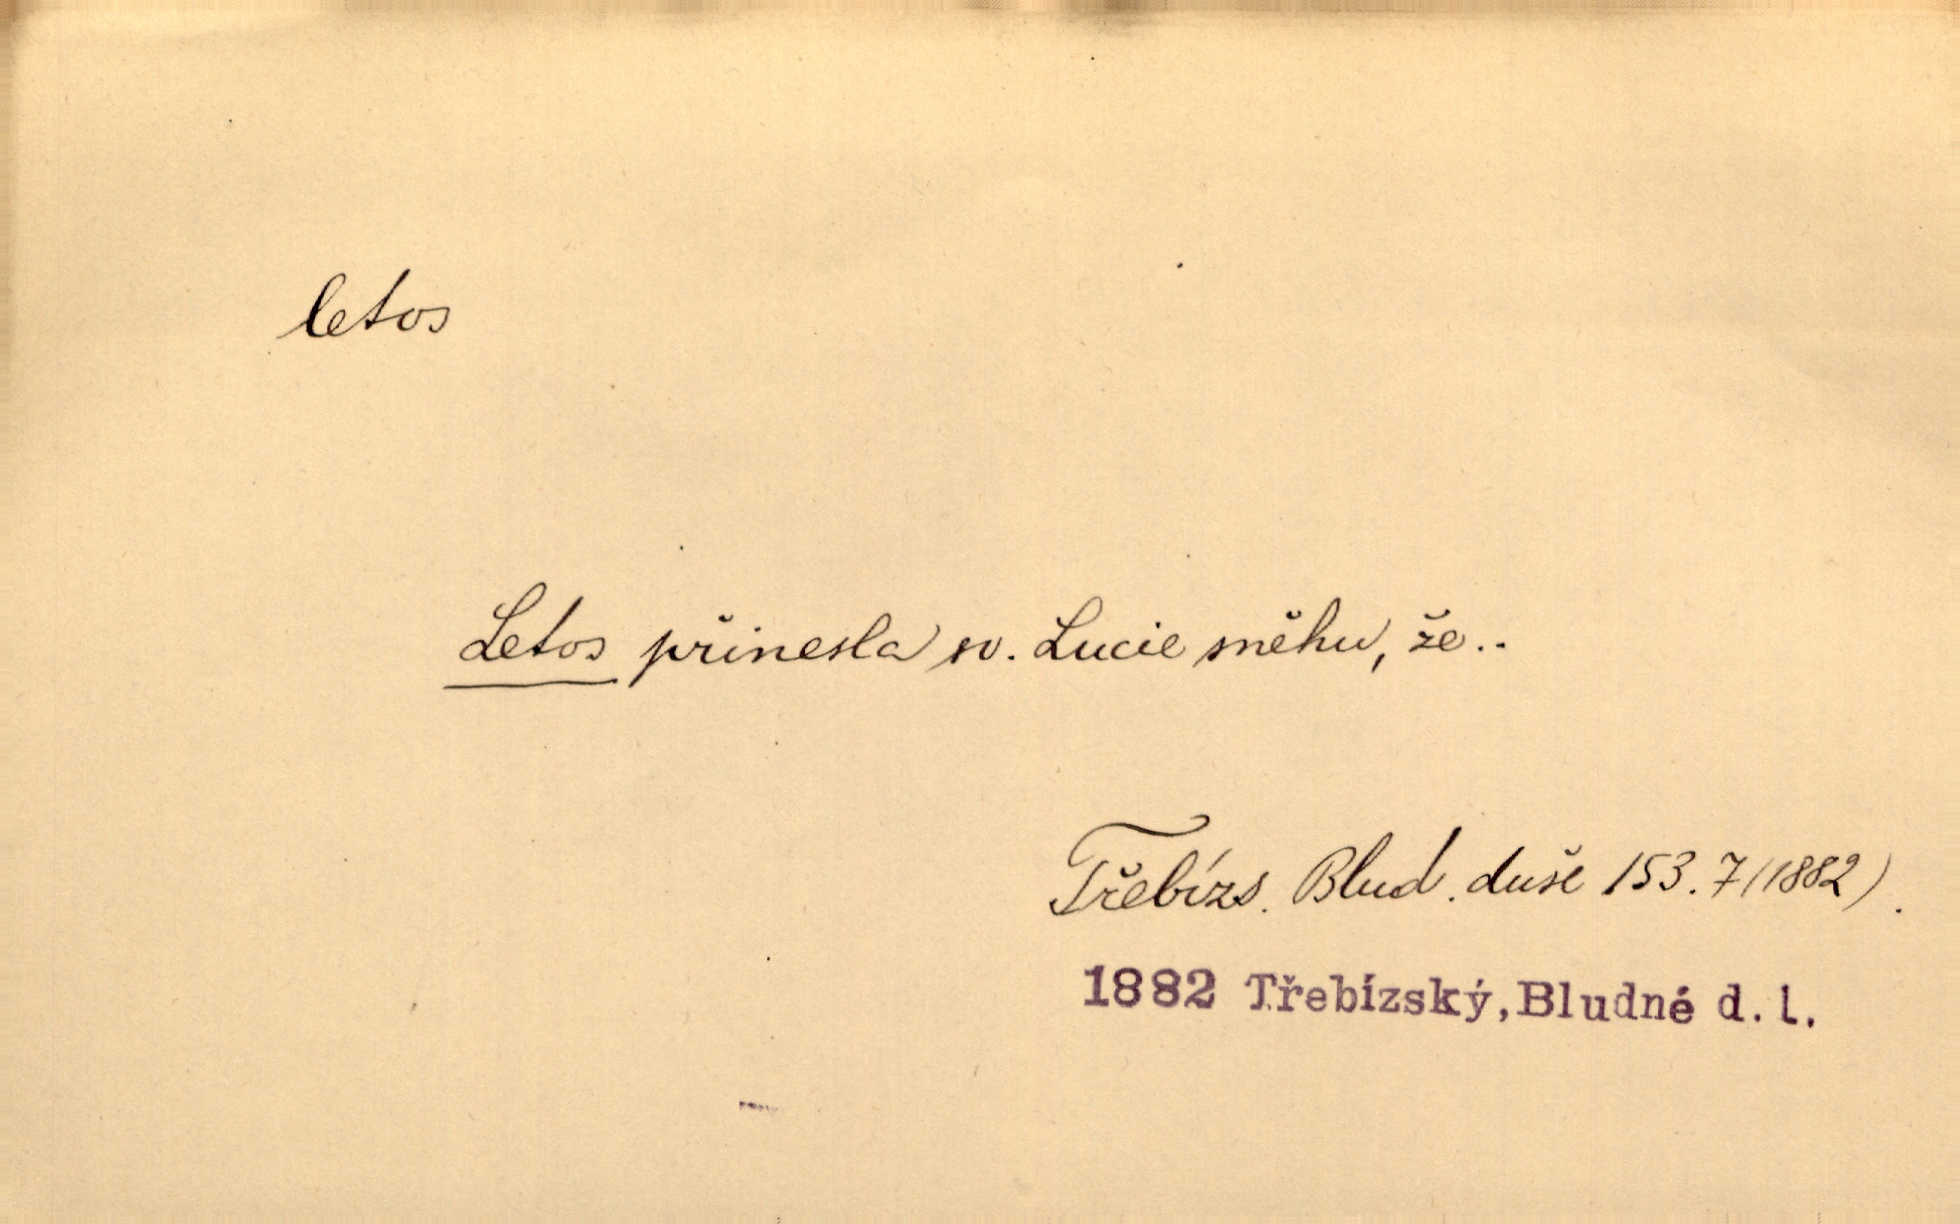 letos
Letos přinesla sv. Lucie sněhu, že..
Třebízs. Blud. duše 153. 7 (1882).
1882 Třebízský, Bludné d. l.